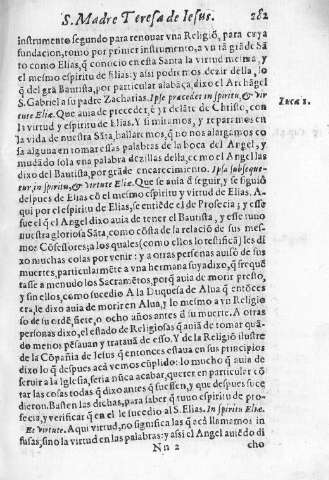 S. Madre Teresa de Iesus. 282
instrumento segundo para renouar vna Religiõ, para cuya
fundacion, tomo por primer instrumento, a vn tã grãde Sã
to como Elias, q̃ conocio en esta Santa la virtud mesma, y
el mesmo espiritu de Elias: y assi podremos dezir della, lo
q̃ del grã Bautista, por particular alabãça, dixo el Archãgel
S. Gabriel a su padre Zacharias. Ipse præcedet in spiritu, & vir
tute Eliæ. Que auia de preceder, é yr delãte de Christo, con
la virtud y espiritu de Elias. Y si miramos, y reparamos en
la vida de nuestra Sãta, hallaremos, q̃ no nos alargamos co
sa alguna en tomar essas palabras de la boca del Angel, y
mudãdo sola vna palabra dezillas della, como el Angel las
dixo del Bautista, por grãde encarecimiento. Ipsa subseque-
tur in spiritu, & virtute Eliæ. Que se auia de seguir, y se siguió
despues de Elias cõ el mesmo espiritu y virtud de Elias. A
qui por el espiritu de Elias, se entiẽde el de Profecia; y esse
fue el q̃ el Angel dixo auia de tener el Bautista, y esse tuuo
nuestra gloriosa Sãta, como cõsta de la relaciõ de sus mes-
mos Cõfessores; a los quales (como ellos lo testificã) les di
xo muchas cosas por venir: y a otras personas auisó de sus
muertes, particularmẽte a vna hermana suya dixo, q̃ frequẽ
tasse a menudo los Sacramẽtos, porq̃ auia de morir presto,
y sin ellos, como sucedio A la Duquesa de Alua q̃ entõces
era, le dixo auia de morir en Alua, y lo mesmo a vn Religio
so de su ordẽ, siete, o ocho años antes d su muerte. A otras
personas dixo, el estado de Religiosas q̃ auiã de tomar quã-
do menos pẽsauan y tratauã de esso. Y de la Religiõ ilustre
de la Cõpañia de Iesus q̃ entonces estaua en sus principios
dixo lo q̃ despues acá vemos cũplido: lo mucho q̃ auia de
seruir a la Iglesia, seria nũca acabar, querer en particular cõ
tar las cosas todas q̃ dixo antes q̃ fuessen, y que despues suce
dieron. Basten las dichas, para saber q̃ tuuo espiritu de pro-
fecia, y verificar q̃ en el le sucedio al S. Elias. In spiritu Eliæ.
Et virtute. Aqui virtud, no significa las q̃ acá llamamos in
fusas, sino la virtud en las palabras: y assi el Angel auiẽdo di
Nn 2 cho
Luca 1.